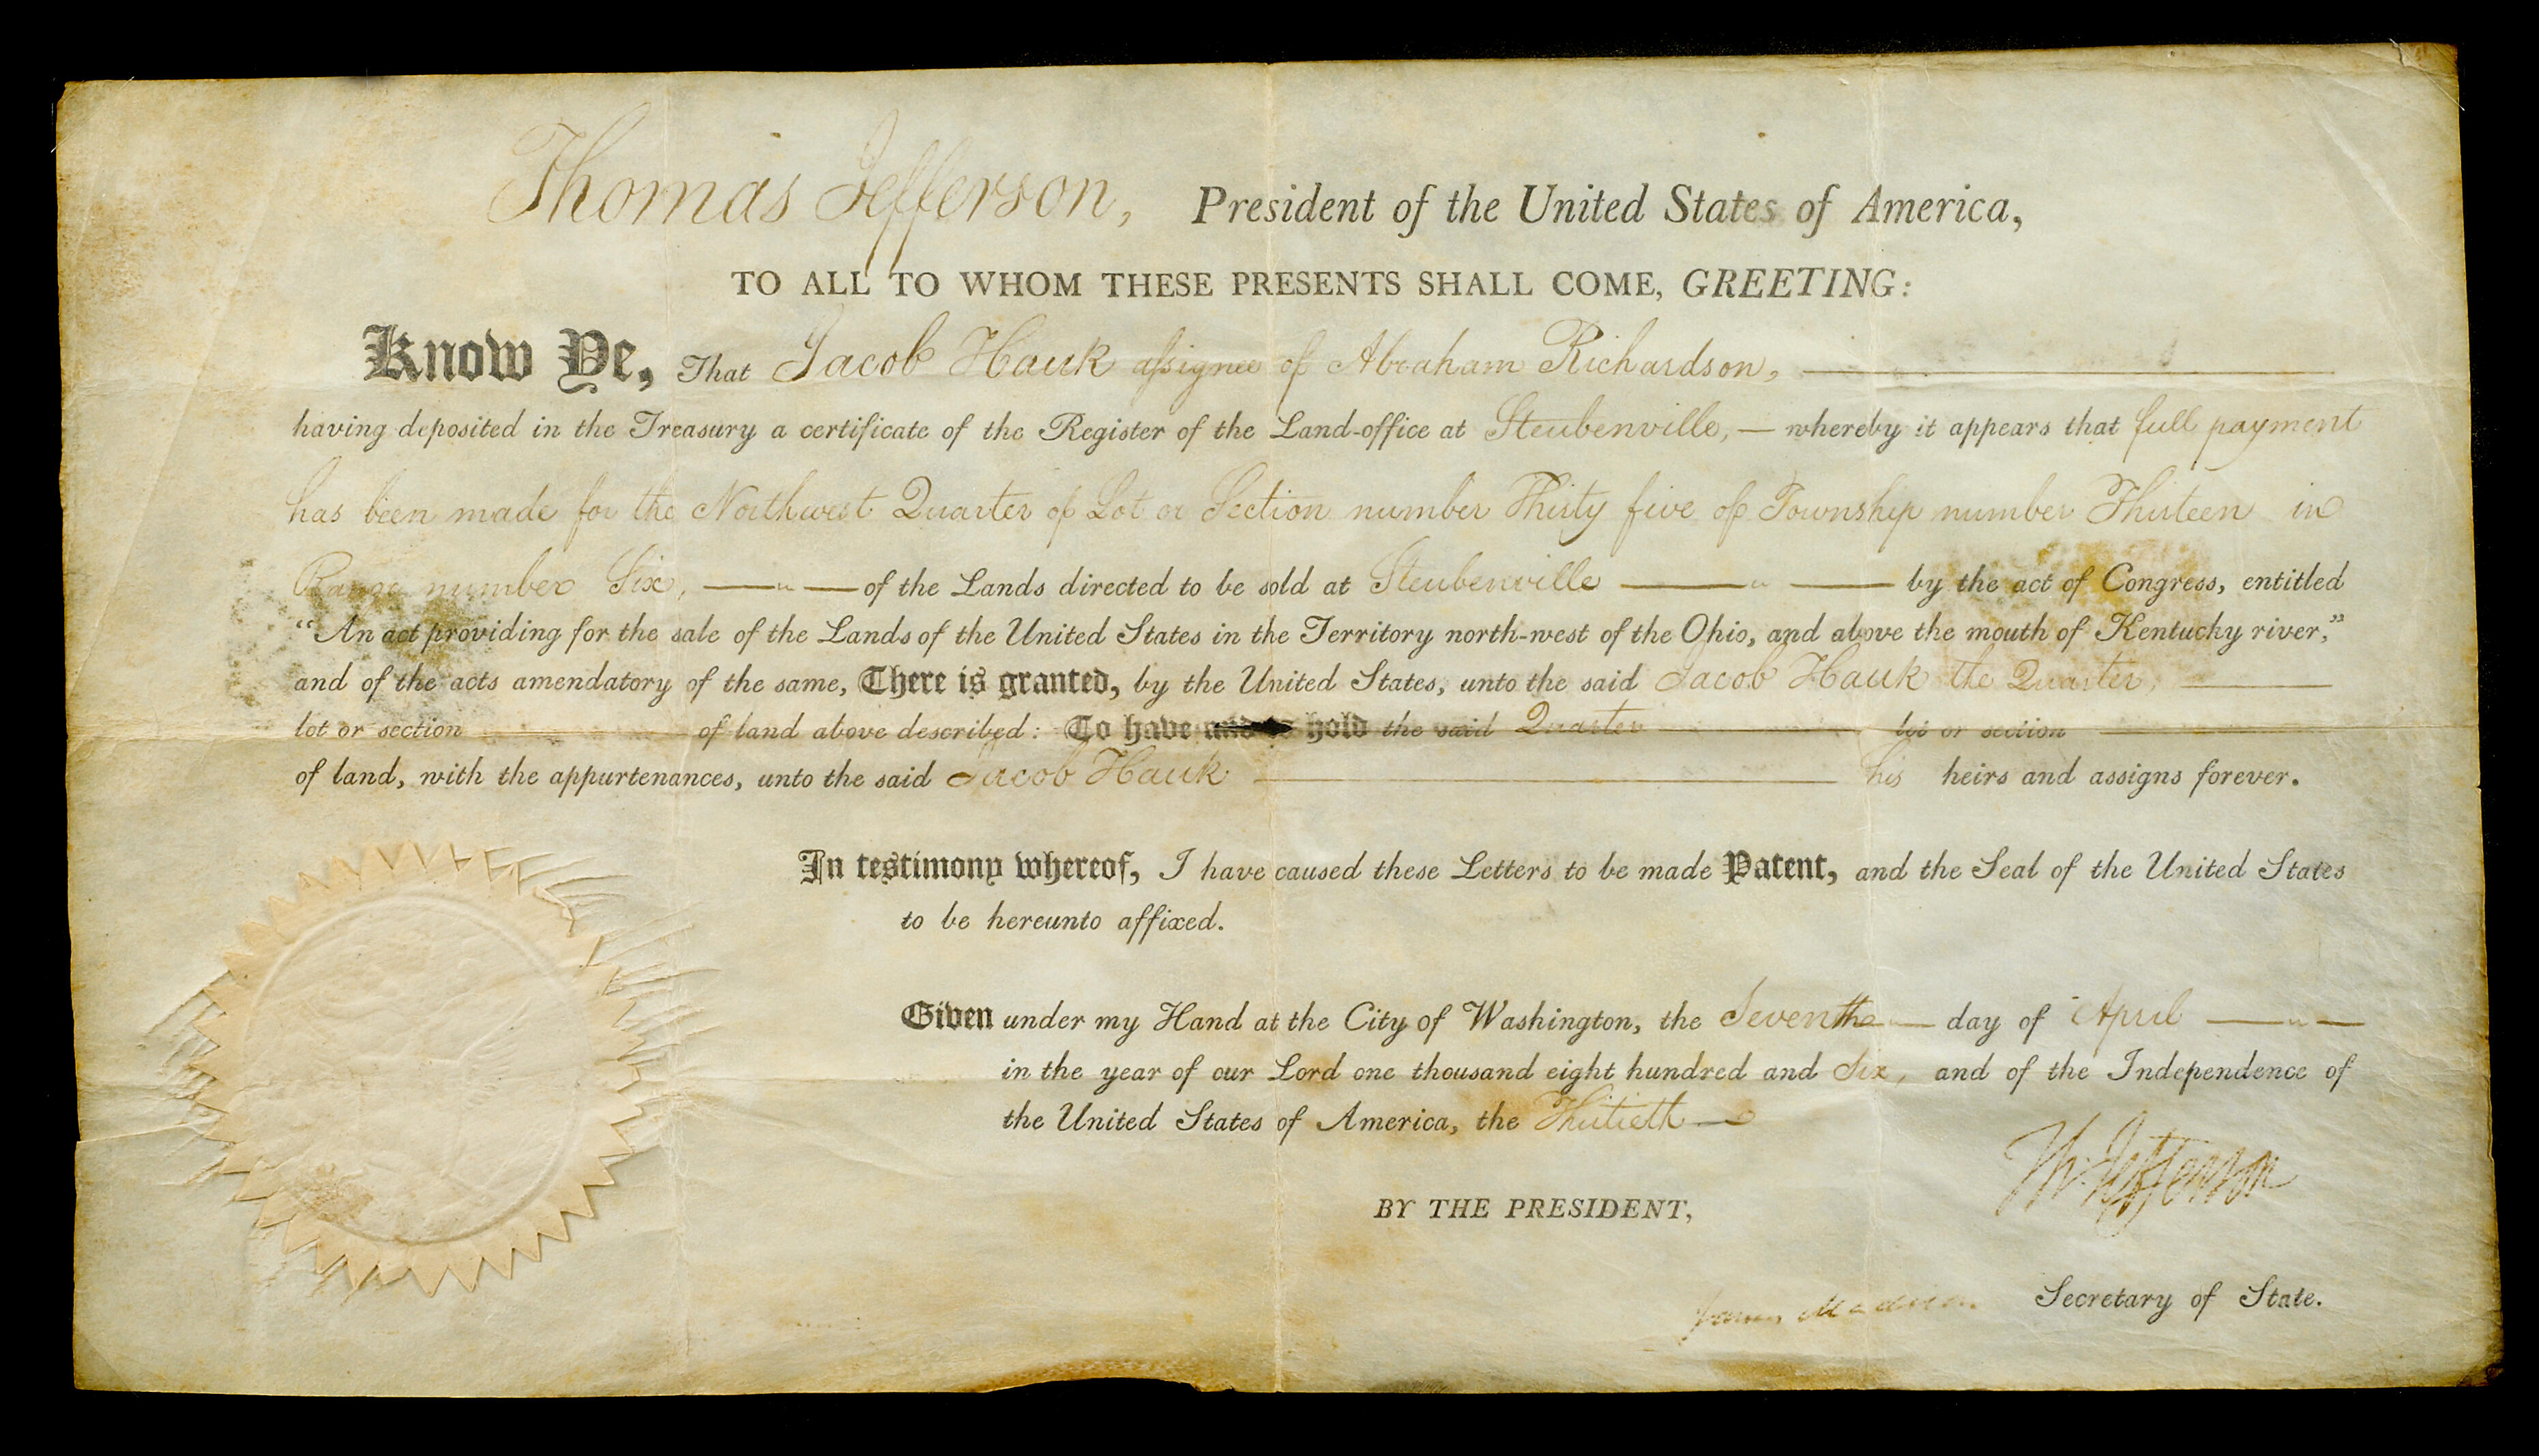 Thomas Jefferson, President of the United States of America,
TO ALL TO WHOM THESE PRESENTS SHALL COME, GREETING:
Know Ye, That Jacob Hauk assignee of Abraham Richardson,
having deposited in the Treasury a certificate of the Register of the Land-office at Steubenville, — whereby it appears that full payment
has been made for the Northwest Quarter of Lot or Section number Thirty five of Township number Thirteen in
Range number Six, — " — of the Lands directed to be sold at Steubenville — " — by the act of Congress, entitled
“An act providing for the sale of the Lands of the United States in the Territory north-west of the Ohio, and above the mouth of Kentucky river,”
and of the acts amendatory of the same, There is granted, by the United States, unto the said Jacob Hauk the Quarter, —
lot or section of land above described: To have and to hold the said Quarter — lot or section —
of land, with the appurtenances, unto the said Jacob Hauk — his heirs and assigns forever.
In testimony whereof, I have caused these Letters to be made Patent, and the Seal of the United States
to be hereunto affixed.
Given under my Hand at the City of Washington, the Seventh — day of April — " —
in the year of our Lord one thousand eight hundred and Six, and of the Independence of
the United States of America, the Thirtieth —
Th: Jefferson
BY THE PRESIDENT,
James Madison Secretary of State.